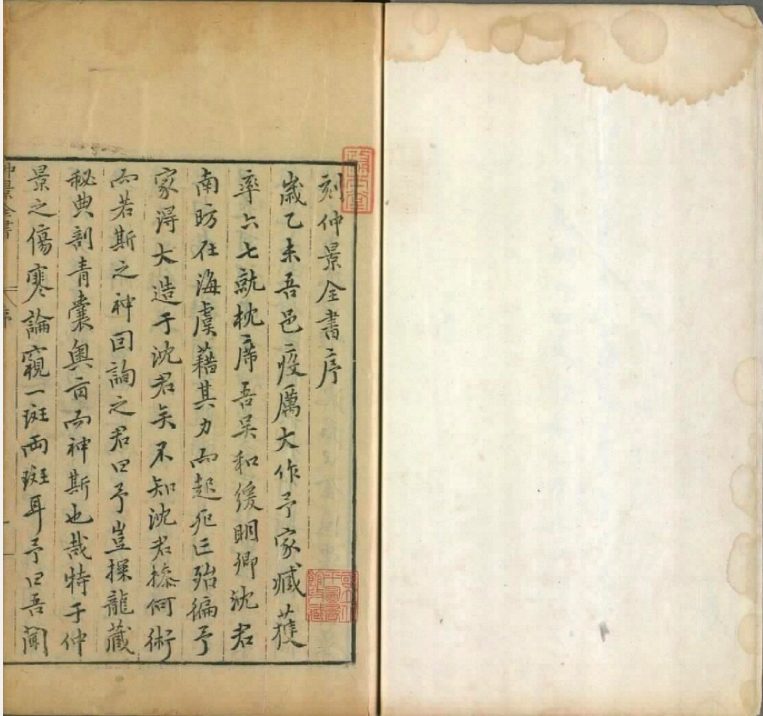 刻仲景全書序
歲乙未吾邑疫厲大作予家臧獲
率六七就枕席吾吳和緩明卿沈君
南昉在海虞藉其力而起死亡殆徧予
家得大造于沈君矣不知沈君操何術
而若斯之神因詢之君曰予豈探龍藏
秘典剖青囊奧旨而神斯也哉特于仲
景之傷寒論窺一斑兩斑耳予曰吾聞
仲景全書
序